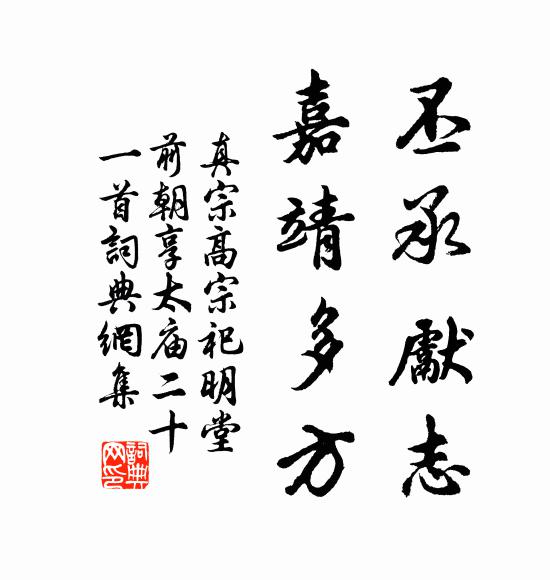 丕承獻志
嘉靖多方
真宗高宗祀明堂
前朝享太庙二十
一首詞典網集
詞典
网印